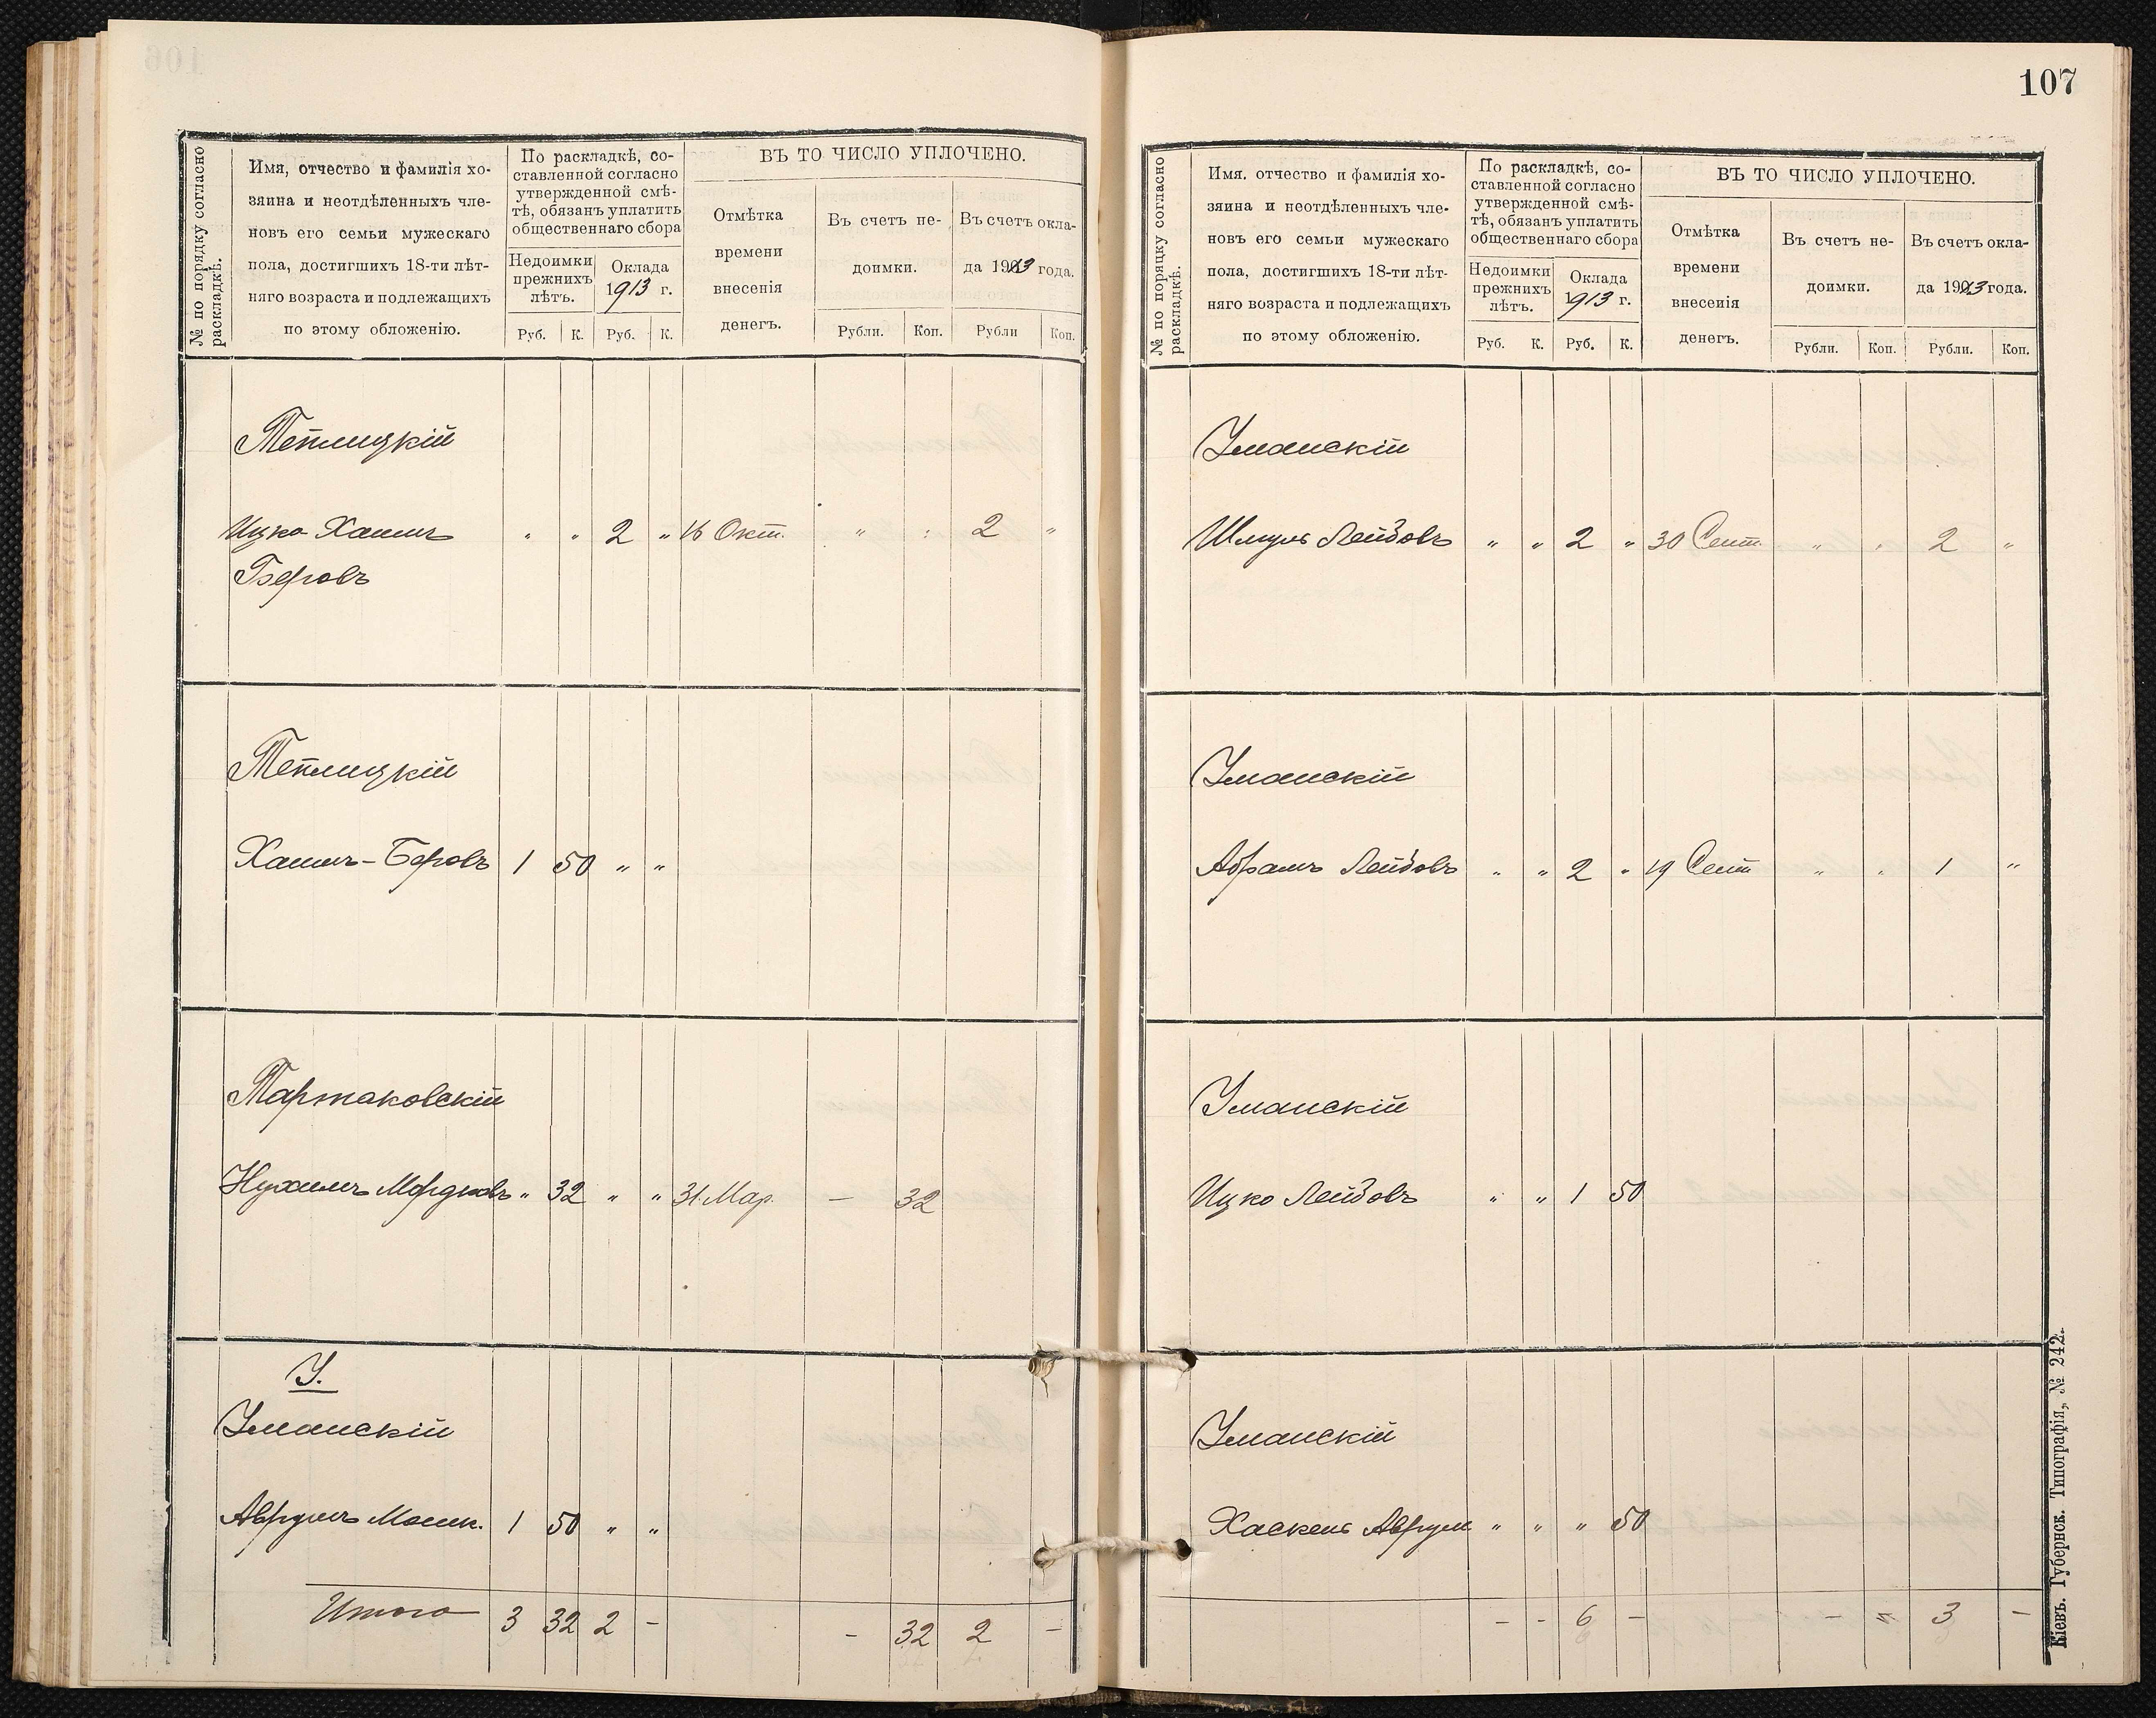 107
№ по порядку согласно раскладкѣ.
Имя, отчество и фамилія хо-
зяина и неотдѣленныхъ чле-
новъ его семьи мужескаго
пола, достигшихъ 18-ти лѣт-
няго возраста и подлежащихъ
по этому обложенію.
По раскладкѣ, со-
ставленной согласно
утвержденной смѣ-
тѣ, обязанъ уплатить
общественнаго сбора
Недоимки
прежнихъ
лѣтъ.
Оклада
1913 г.
Руб. К. Руб. К.
ВЪ ТО ЧИСЛО УПЛОЧЕНО.
Отмѣтка
времени
внесенія
денегъ.
Въ счетъ не-
доимки.
Въ счетъ окла-
да 1913 года.
Рубли. Коп. Рубли Коп.
Теплицкій
Ицко-Хаимъ " " 2 " 16 Окт. " " 2 "
Беровъ
Теплицкій
Хаимъ-Беровъ 1 50 " "
Тартаковскій
Нухимъ Мордковъ " 32 " " 31 Мар. — 32
У.
Уманскій
Аврумъ Мошк. 1 50 " "
Итого 3 32 2 - - 32 2 -
№ по порядку согласно раскладкѣ.
Имя. отчество и фамилія хо-
зяина и неотдѣленныхъ чле-
новъ его семьи мужескаго
пола, достигшихъ 18-ти лѣт-
няго возраста и подлежащихъ
по этому обложенію.
По раскладкѣ, со-
ставленной согласно
утвержденной смѣ-
тѣ, обязанъ уплатить
общественнаго сбора
Недоимки
прежнихъ
лѣтъ.
Оклада
1913 г.
Руб. К. Руб. К.
ВЪ ТО ЧИСЛО УПЛОЧЕНО.
Отмѣтка
времени
внесенія
денегъ.
Въ счетъ не-
доимки.
Въ счетъ окла-
да 1913 года.
Рубли. Коп. Рубли. Коп.
Уманскій
Шмуль Лейбовъ " " 2 " 30 Сент. " " 2 "
Уманскій
Абрамъ Лейбовъ " " 2 " 19 Сент " " 1 "
Уманскій
Ицко Лейбовъ " " 1 50
Уманскій
Хаскель Аврум " " " 50
- - 6 - - " 3 -
Кіевъ. Губернск. Типографія, № 242.